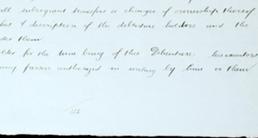 all subsequent transfers or changes of ownership thereof
but a description of the debenture holders and the
des them
older for the time being of this Debenture his executors
any person authorized in writing by him or them